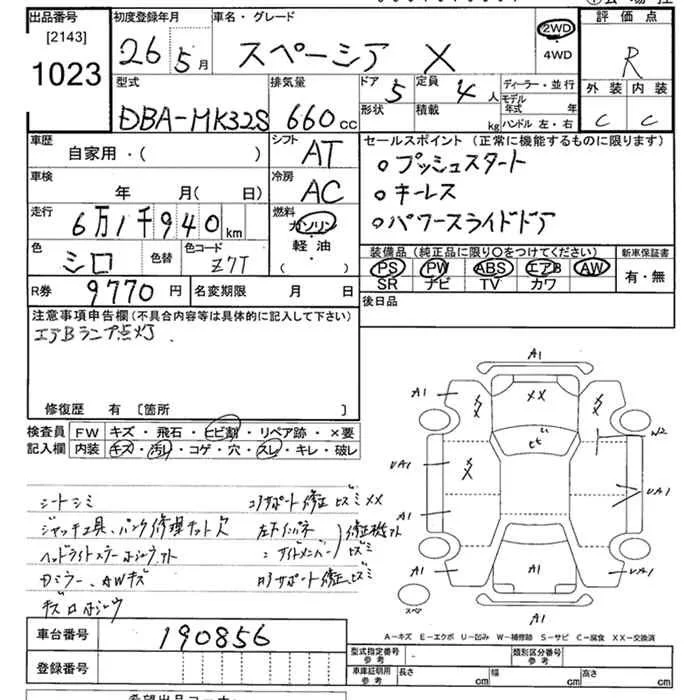 出品番号 初度登録年月 車名・グレード 評価点
[2143] 26年5月 スペーシア X 2WD・4WD R
1023
型式 排気量 ドア 定員 ディーラー・並行 外装 内装
DBA-MK32S 660cc 5 4人 モデル年式 年 C C
形状 積載 kg ハンドル 左・右
車歴 シフト セールスポイント (正常に機能するものに限ります)
自家用・( ) AT ○プッシュスタート
車検 冷房 ○キーレス
年 月( 日) AC ○パワースライドドア
走行 燃料
6万1千940km ガソリン
軽油
・( )
色 色替 色コード 装備品 (純正品に限り○をつけてください) 新車保証書
シロ Z7T PS PW ABS エアB AW 有・無
SR ナビ TV カワ
R券 9770円 名変期限 月 日 後日品
注意事項申告欄 (不具合内容等は具体的に記入して下さい)
エアBランプ点灯
修復歴 有 [箇所 ]
検査員 FW キズ・飛石・ヒビ割・リペア跡・×要
記入欄 内装 キズ・汚れ・コゲ・穴・スレ・キレ・破レ
A1
A1 XX A1
XX XX
ヒビ W2
UA1 XX UA1
A1
A1 UA1
A1
スペア
シートシミ コアサポート修正ヒズミXX
ジャッキ工具、パンク修理キット欠 左下インパネ 修正機キズ
ヘッドライトステー 〃サイドメンバー ヒズミ
Dミラー、AWキズ
A-キズ E-エクボ U-凹み W-補修跡 S-サビ C-腐食 XX-交換済
車台番号 190856
登録番号
型式指定番号 参考 類別区分番号 参考
車庫証明用 参考 長さ cm 幅 cm 高さ cm